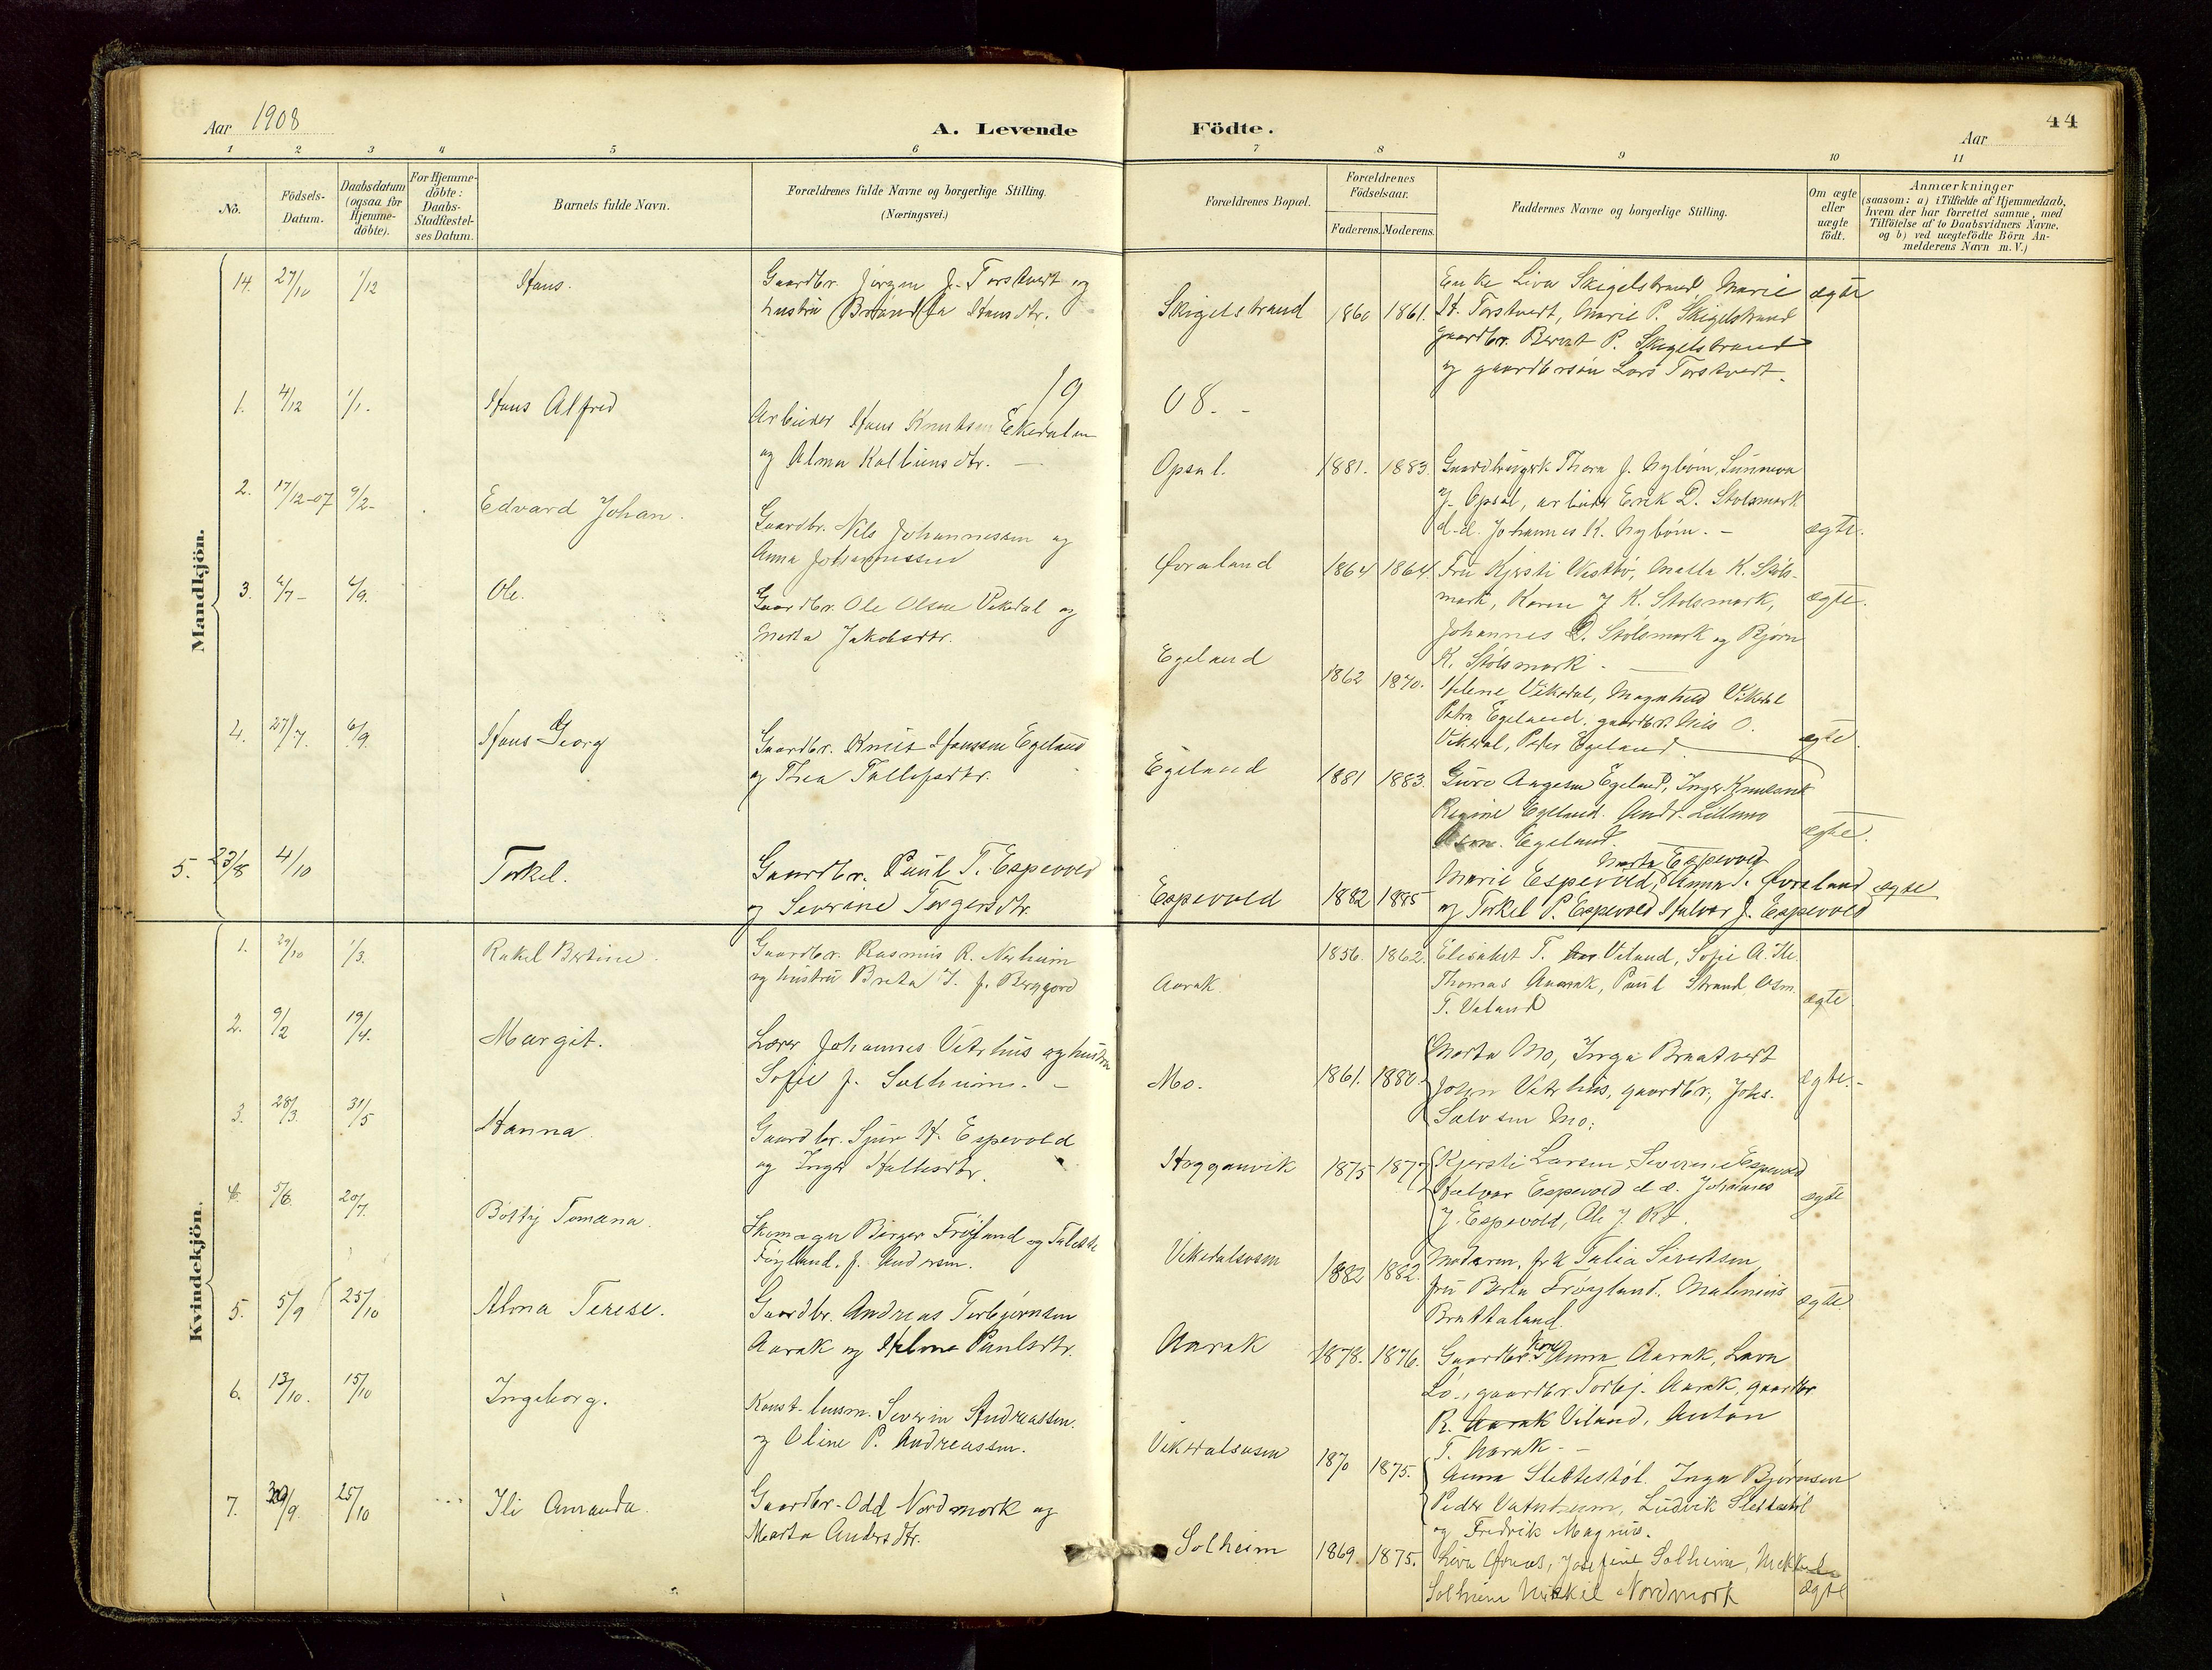 Aar 1908
A. Levende
Födte.
Aar
44
1 2 3 4 5 6 7 8 9 10 11
No.
Födsels-
Datum.
Daabsdatum
(ogsaa for
Hjemme-
döbte).
For Hjemme-
döbte:
Daabs-
Stadfæstel-
ses Datum.
Barnets fulde Navn.
Forældrenes fulde Navne og borgerlige Stilling.
(Næringsvei.)
Forældrenes Bopæl.
Forældrenes
Födselsaar.
Faderens. Moderens.
Faddernes Navne og borgerlige Stilling.
Om ægte
eller
uægte
födt.
Anmærkninger
(saasom: a) i Tilfælde af Hjemmedaab,
hvem der har forrettet samme, med
Tilföielse af to Daabsvidners Navne,
og b) ved uægtefödte Börn An-
melderens Navn m. V.)
Mandkjön.
14. 27/10 1/12 Hans.
Gaardbr. Jörgen J. Torstvert og
hustru Hansdtr.
Skigelstrand 1860 1861.
Enke Liva Skigelstrand, Marie
H. Torstvert, Marie P. Skigelstrand
gaardbr. Bernt P. Skigelstrand
og gaardbrsøn Lars Torstvert.
ægte
19 08. -
1. 4/12 1/1. Hans Alfred
Arbeider Hans Knutsen Ekedalen
og Alma Kolbiensdtr. -
Opsal. 1881. 1883.
Thora J. Nybøm,
J. Opsal, arbeider Erik D. Stolsmark
d.d. Johannes K. Nybøm. -
ægte.
2. 17/12-07 9/2- Edvard Johan.
Gaardbr. Nils Johannessen og
Anna Johannessen
Øvraland 1864 1864.
Fru Kjersti Vestbø, Malla K. Støls-
mark, Karen J K. Stolsmark,
Johannes D. Stölsmark og Bjørn
K. Stölsmark -
ægte.
3. 4/9. Ole.
Gaardbr. Ole Olsen Vikedal og
Marta Jakobsdtr.
Egeland 1862 1870.
Helene Vikedal, Magnhild Vikedal
Petra Egeland, gaardbr. Nils O.
Vikedal, Peder Egeland
ægte.
4. 27/7. 6/9. Hans Georg
Gaardbr. Knut Hanssen Egeland
og Thea Tollefsdtr.
Egeland 1881 1883.
Guro Aagesen Egeland, Inger
Regine Egeland. Andr.
Egeland.
ægte.
5. 23/8 4/10 Torkel.
Gaardbr. Paul T. Espevold
og Severine Torgersdtr.
Espevold 1882 1885
Marta Espevold
Marie Espevold, Anna T. Øvraland
og Torkel P. Espevold Halvor J. Espevold
ægte
Kvindekjön.
1. 29/10 1/3. Rakel Bertine.
Gaardbr. Rasmus R. Norheim
og hustru Breta T. f. Berggord
Aarak 1856. 1862.
Elisabet T. Viland, Sofie A.
Thomas Aarak, Paul Strand, Osm.
T. Viland
ægte.
2. 9/2 19/4. Margit.
Lærer Johannes Vatrhus og hustru
Sofie f. Solheim. -
Mo. 1861. 1880.
Marta Mo, Inga Braatvert
John Vatrhus, gaardbr, Johs.
Salvsen Mo.
ægte.-
3. 28/3. 31/5 Hanna.
Gaardbr. Sjur H. Espevold
og Inger Hallesdtr.
Hogganvik 1875 1877
Kjersti Larsen, Severine Espevold
Halvor Espevold d.d. Johannes
J. Espevold, Ole J.
ægte
4. 5/6. 20/7. Botty Tomana.
Skomager Birger Frøyland og
Frøyland, f. Andersen.
Vikedalsosen 1882 1882.
Moderen, frk Talia Sivertsen
fru Berta Frøyland. Malenius
Brattaland
ægte.
5. 5/9 25/10 Alma Terese.
Gaardbr. Andreas Torbjørnsen
Aarak og Helma Paulsdtr.
Aarak 1878. 1876.
Gaardbr. kone Anna Aarak, Lava
Lo-, gaardbr. Torbj. Aarak, gaardbr
R. Aarak Viland, Anton
T. Aarak- -
6. 13/10. 15/10 Ingeborg.
Konst. lensm. Severin Andreassen.
og Oline P. Andreassen.
Vikedalsosen 1870 1875.
Anna Slettestøl. Inga Bjørnsen
Peder Vatnheim, Ludvik Slettestøl
og Fredrik Magnus.
7. 25/10 Ili Amanda.
Gaardbr. Odd Nordmork og
Marta Andersdtr.
Solheim 1869. 1875.
Liva Josefine Solheim,
Solheim Mikkel Nordmork
ægte